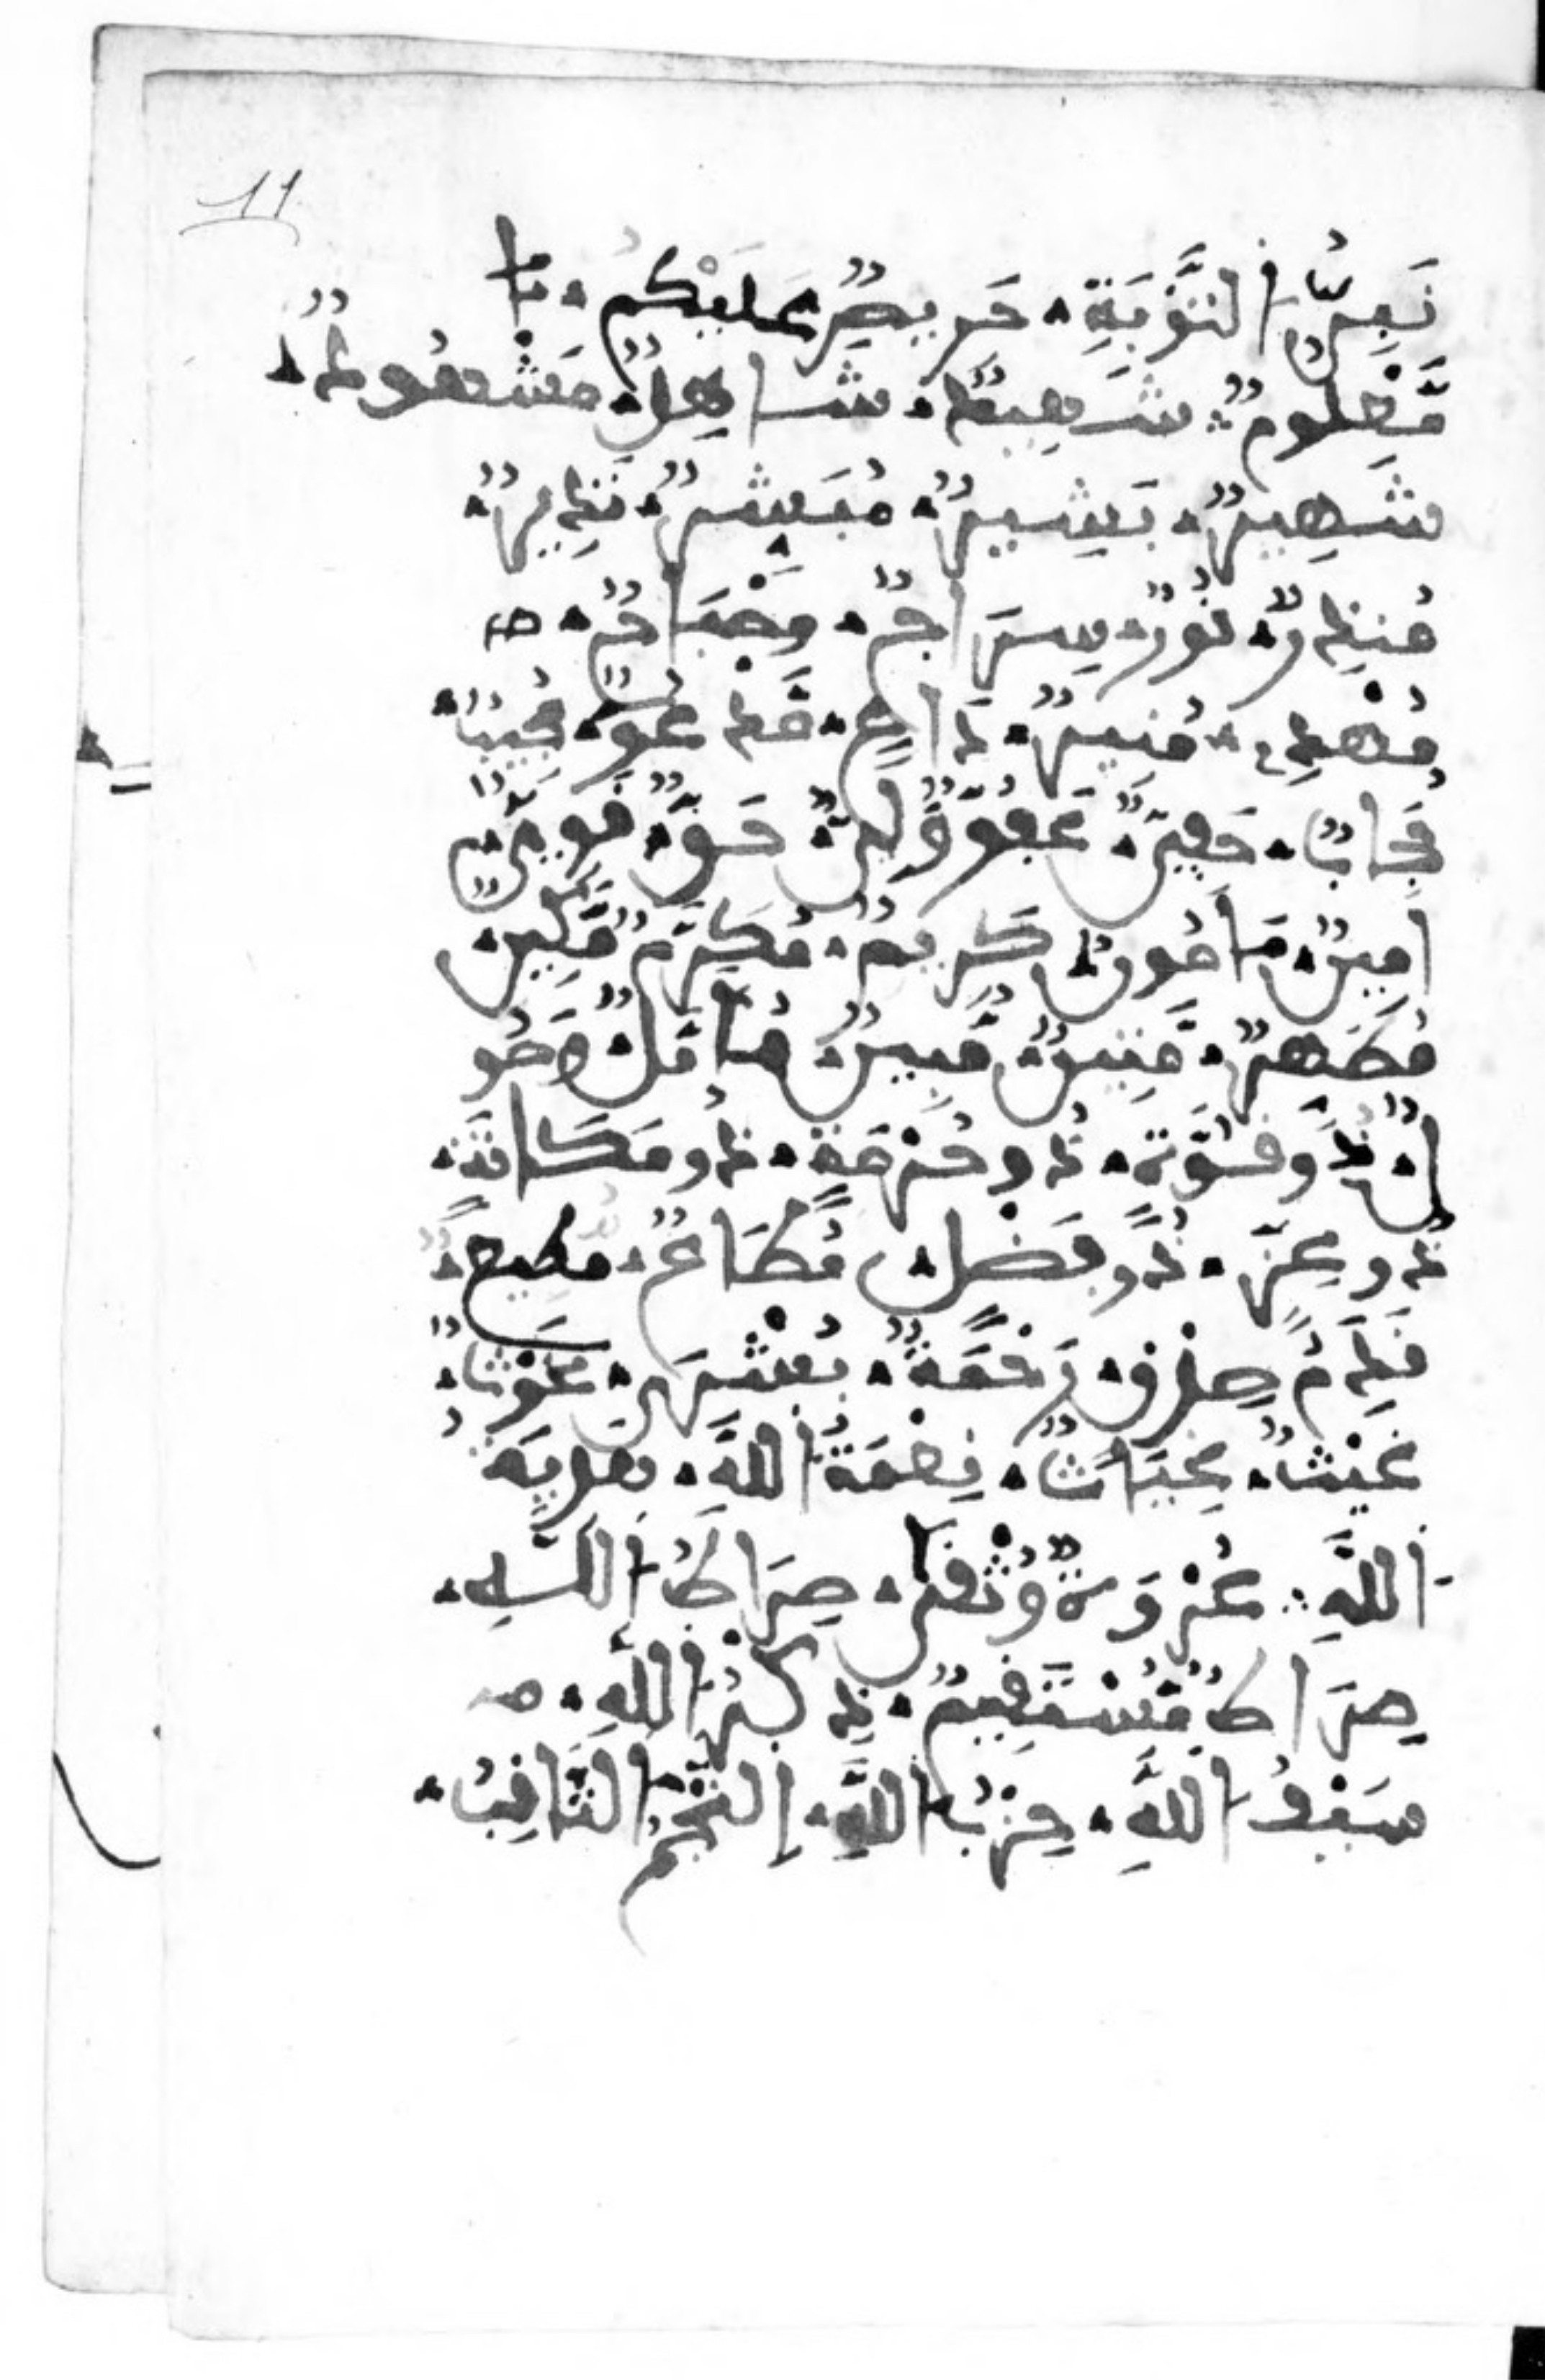 11
نَبِيُّ التَّوْبَةِ حَرِيصٌ عَلَيْكُم
مَّعْلُومٌ شَهِيدٌ شَاهِدٌ مَشْهُودٌ
شَهِيرٌ بَشِيرٌ مُبَشِّرٌ نَذِيرٌ
مُنذِرٌ نُورٌ سِرَاجٌ مِصْبَاحٌ
مُهْدِي مُنِيرٌ دَاعٍ مَدْعُوٌّ مُجِيبٌ
مُجَابٌ حَفِيٌّ عَفُوٌّ وَّلِيٌّ حَقٌّ قَوِيٌّ
اَمِينٌ مَامُونٌ كَرِيمٌ مُكَرَّمٌ مَّكِينٌ
مَّتِينٌ مُّبِينٌ مُؤَمَّلٌ وَصُو
لٌ ذُو قُوَّةٍ ذُو حُرْمَةٍ ذُو مَكَانَةٍ
ذُو عِزٍّ ذُو فَضْلٍ مُطَاعٌ مُطِيعٌ
قَدَمُ صِدْقٍ رَحْمَةٌ بُشْرَى غَوْثٌ
غَيْثٌ غِيَاثٌ نِعْمَةُ اللَّهِ هَدِيَّةُ
اللَّهِ عُرْوَةٌ وُثْقَى صِرَاطُ اللَّهِ
صِرَاطٌ مُّسْتَقِيمٌ ذِكْرُ اللَّهِ
سَيْفُ اللَّهِ حِزْبُ اللَّهِ النَّجْمُ الثَّاقِبُ